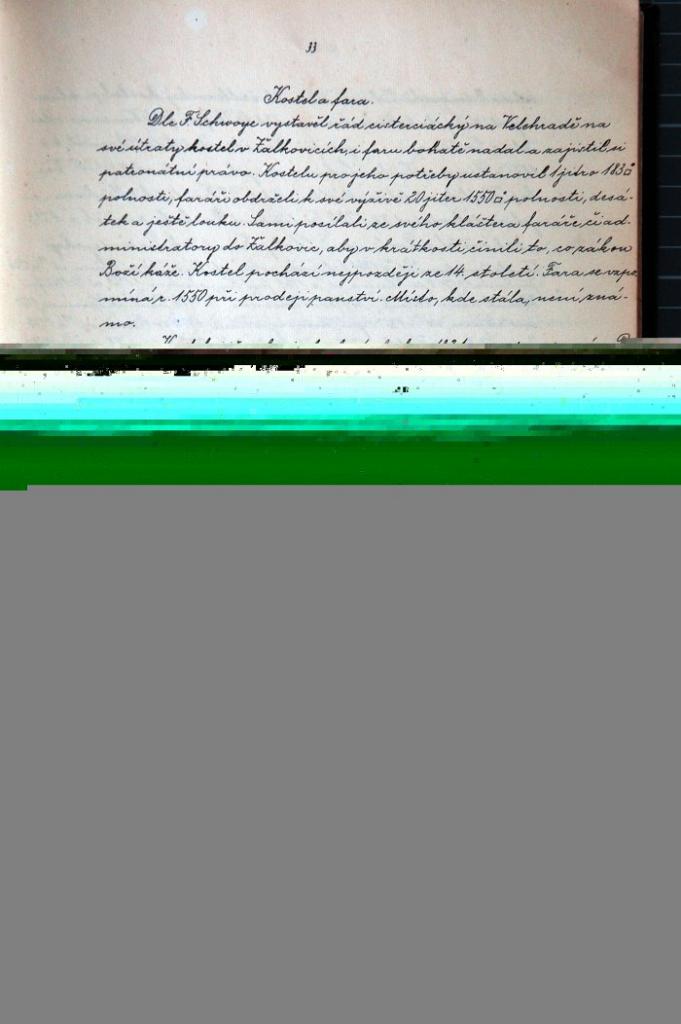 33
Kostel a fara.
Dle F. Schwoye vystavěl řád cisterciácký na Velehradě na
své útraty kostel v Žalkovicích, i faru bohatě nadal a zajistil si
patronátní právo. Kostelu pro jeho potřeby ustanovil 1 jitro 183□
polností, faráři obdrželi k své výživě 20 jiter 1550□ polností, desá-
tek a ještě louku. Sami posílali ze svého kláštera faráře či ad-
ministratory do Žalkovic, aby v krátkosti činili to, co zákon
Boží káže. Kostel pochází nejpozději ze 14. století. Fara se vzpo
míná r. 1550 při prodeji panství. Místo, kde stála, není zná-
mo.